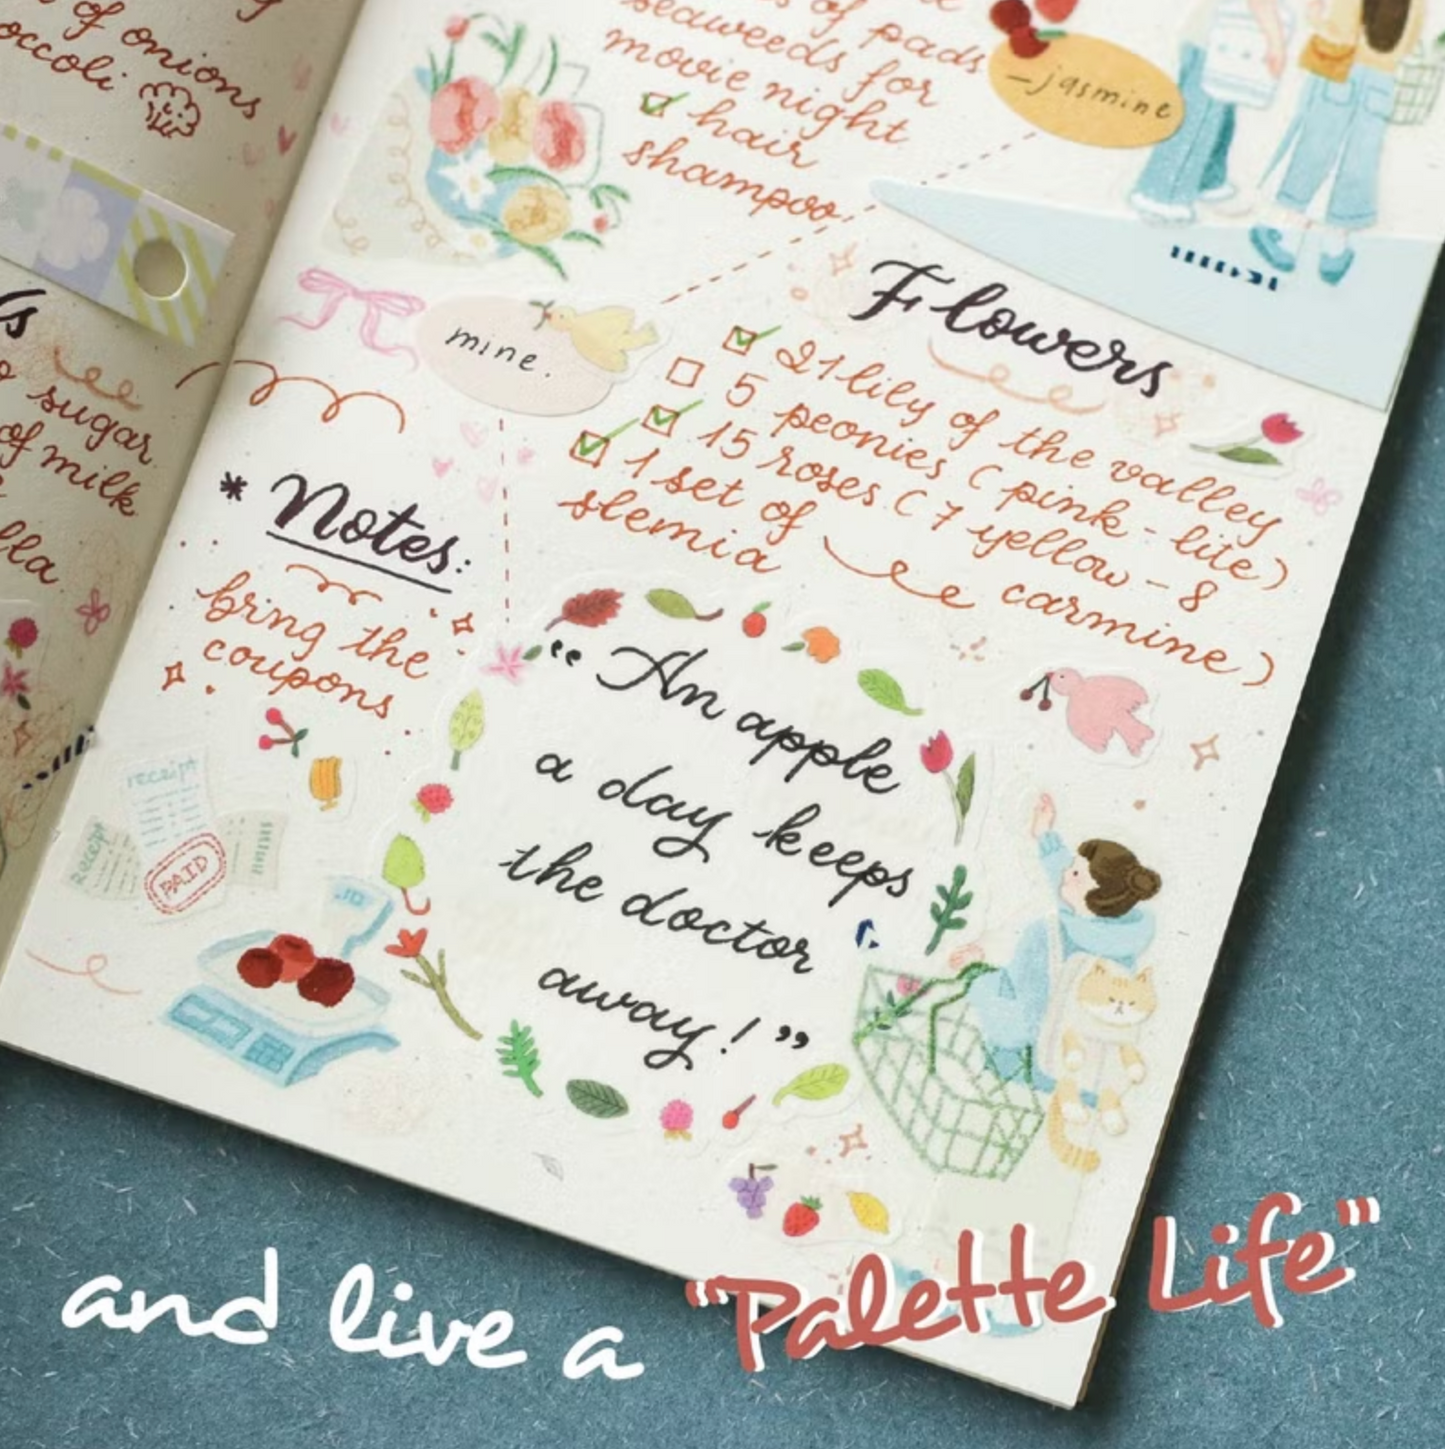 of onions
broccoli
sugar
of milk
of pads
seaweeds for
movie night
hair
shampoo
-jasmine
mine.
Flowers
21 lily of the valley
5 peonies (pink-lite)
15 roses (7 yellow-8
carmine)
1 set of
slemia
* Notes:
bring the
coupons
receipt
receipt
PAID
"An apple
a day keeps
the doctor
away!"
and live a "Palette Life"